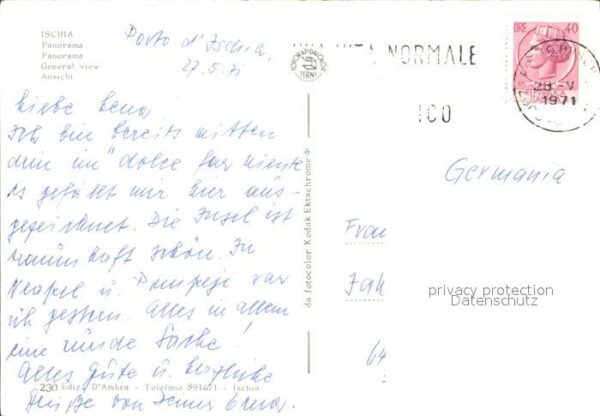 ISCHIA
Panorama
Panorama
General view
Ansicht
Porto d'Ischia,
27.5.71
VITA NORMALE
ICO
LIRE 40
28-V
1971
Liebe Lena,
Ich bin bereits mitten
drin im "dolce far niente"
es gefällt mir hier aus-
gezeichnet. Die Insel ist
traumhaft schön. In
Neapel u. Pompeje war
ich gestern. Alles in allem
eine runde Sache!
Alles Gute u. herzliche
Grüße von Deiner
da fotocolor Kodak Ektachrome
230 Ediz. D'Ambra - Telefono 891471 - Ischia
Germania
Frau
privacy protection
Datenschutz
64